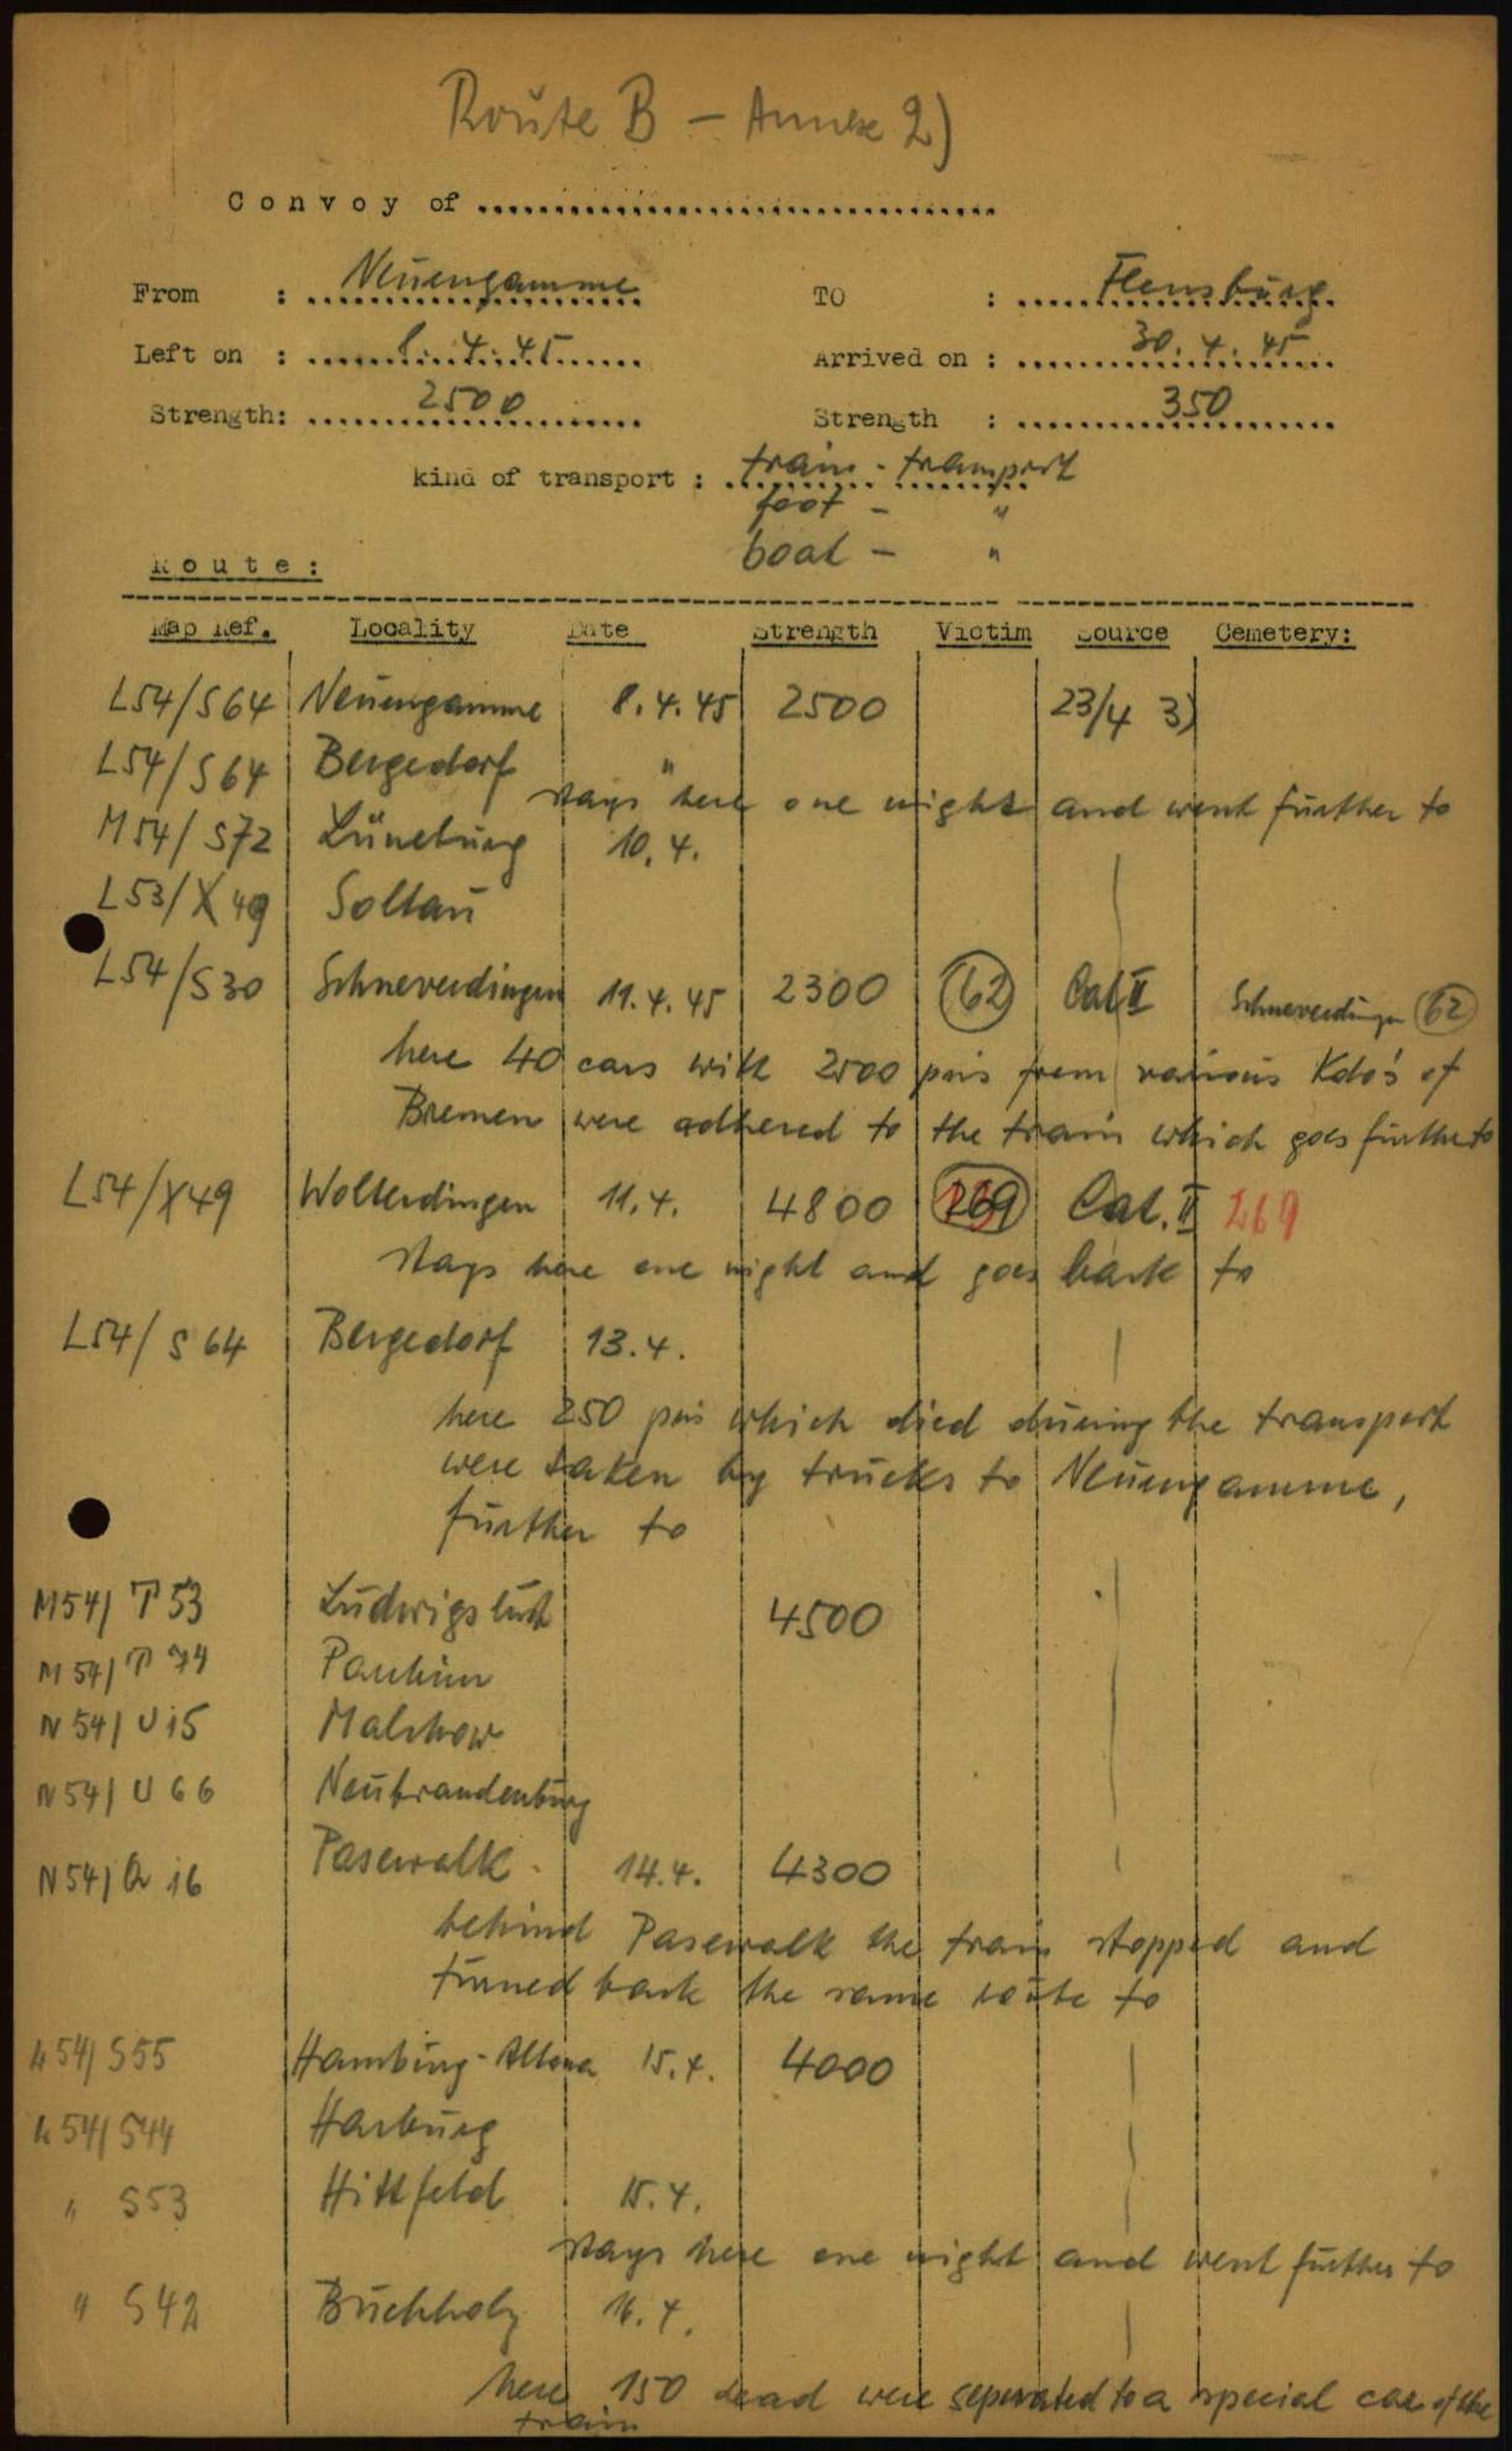 Route B - Annexe 2)
Convoy of ..................................
From : Neuengamme TO : Flensburg
Left on : 8.4.45 Arrived on : 30.4.45
Strength: 2500 Strength : 350
kind of transport : train - transport
foot - "
boat - "
Route:
Map Ref. Locality Date Strength Victim Source Cemetery:
L54/S64 Neuengamme 8.4.45 2500 23/4 3)
L54/S64 Bergedorf "
stays here one night and went further to
M54/S72 Lüneburg 10.4.
L53/X49 Soltau
L54/S30 Schneverdingen 11.4.45 2300 62 Cat II Schneverdingen 62
here 40 cars with 2500 pris from various Kdo's of
Bremen were adhered to the train which goes further to
L54/X49 Wolterdingen 11.4. 4800 269 Cat. II 269
stays here one night and goes back to
L54/S64 Bergedorf 13.4.
here 250 pris which died during the transport
were taken by trucks to Neuengamme,
further to
M54/T53 Ludwigslust 4500
M54/T74 Parchim
N54/U15 Malchow
N54/U66 Neubrandenburg
N54/Q16 Pasewalk 14.4. 4300
behind Pasewalk the train stopped and
turned back the same route to
L54/S55 Hamburg-Altona 15.4. 4000
L54/S44 Harburg
" S53 Hittfeld 15.4.
stays here one night and went further to
" S42 Buchholz 16.4.
here 150 dead were seperated to a special car of the
train